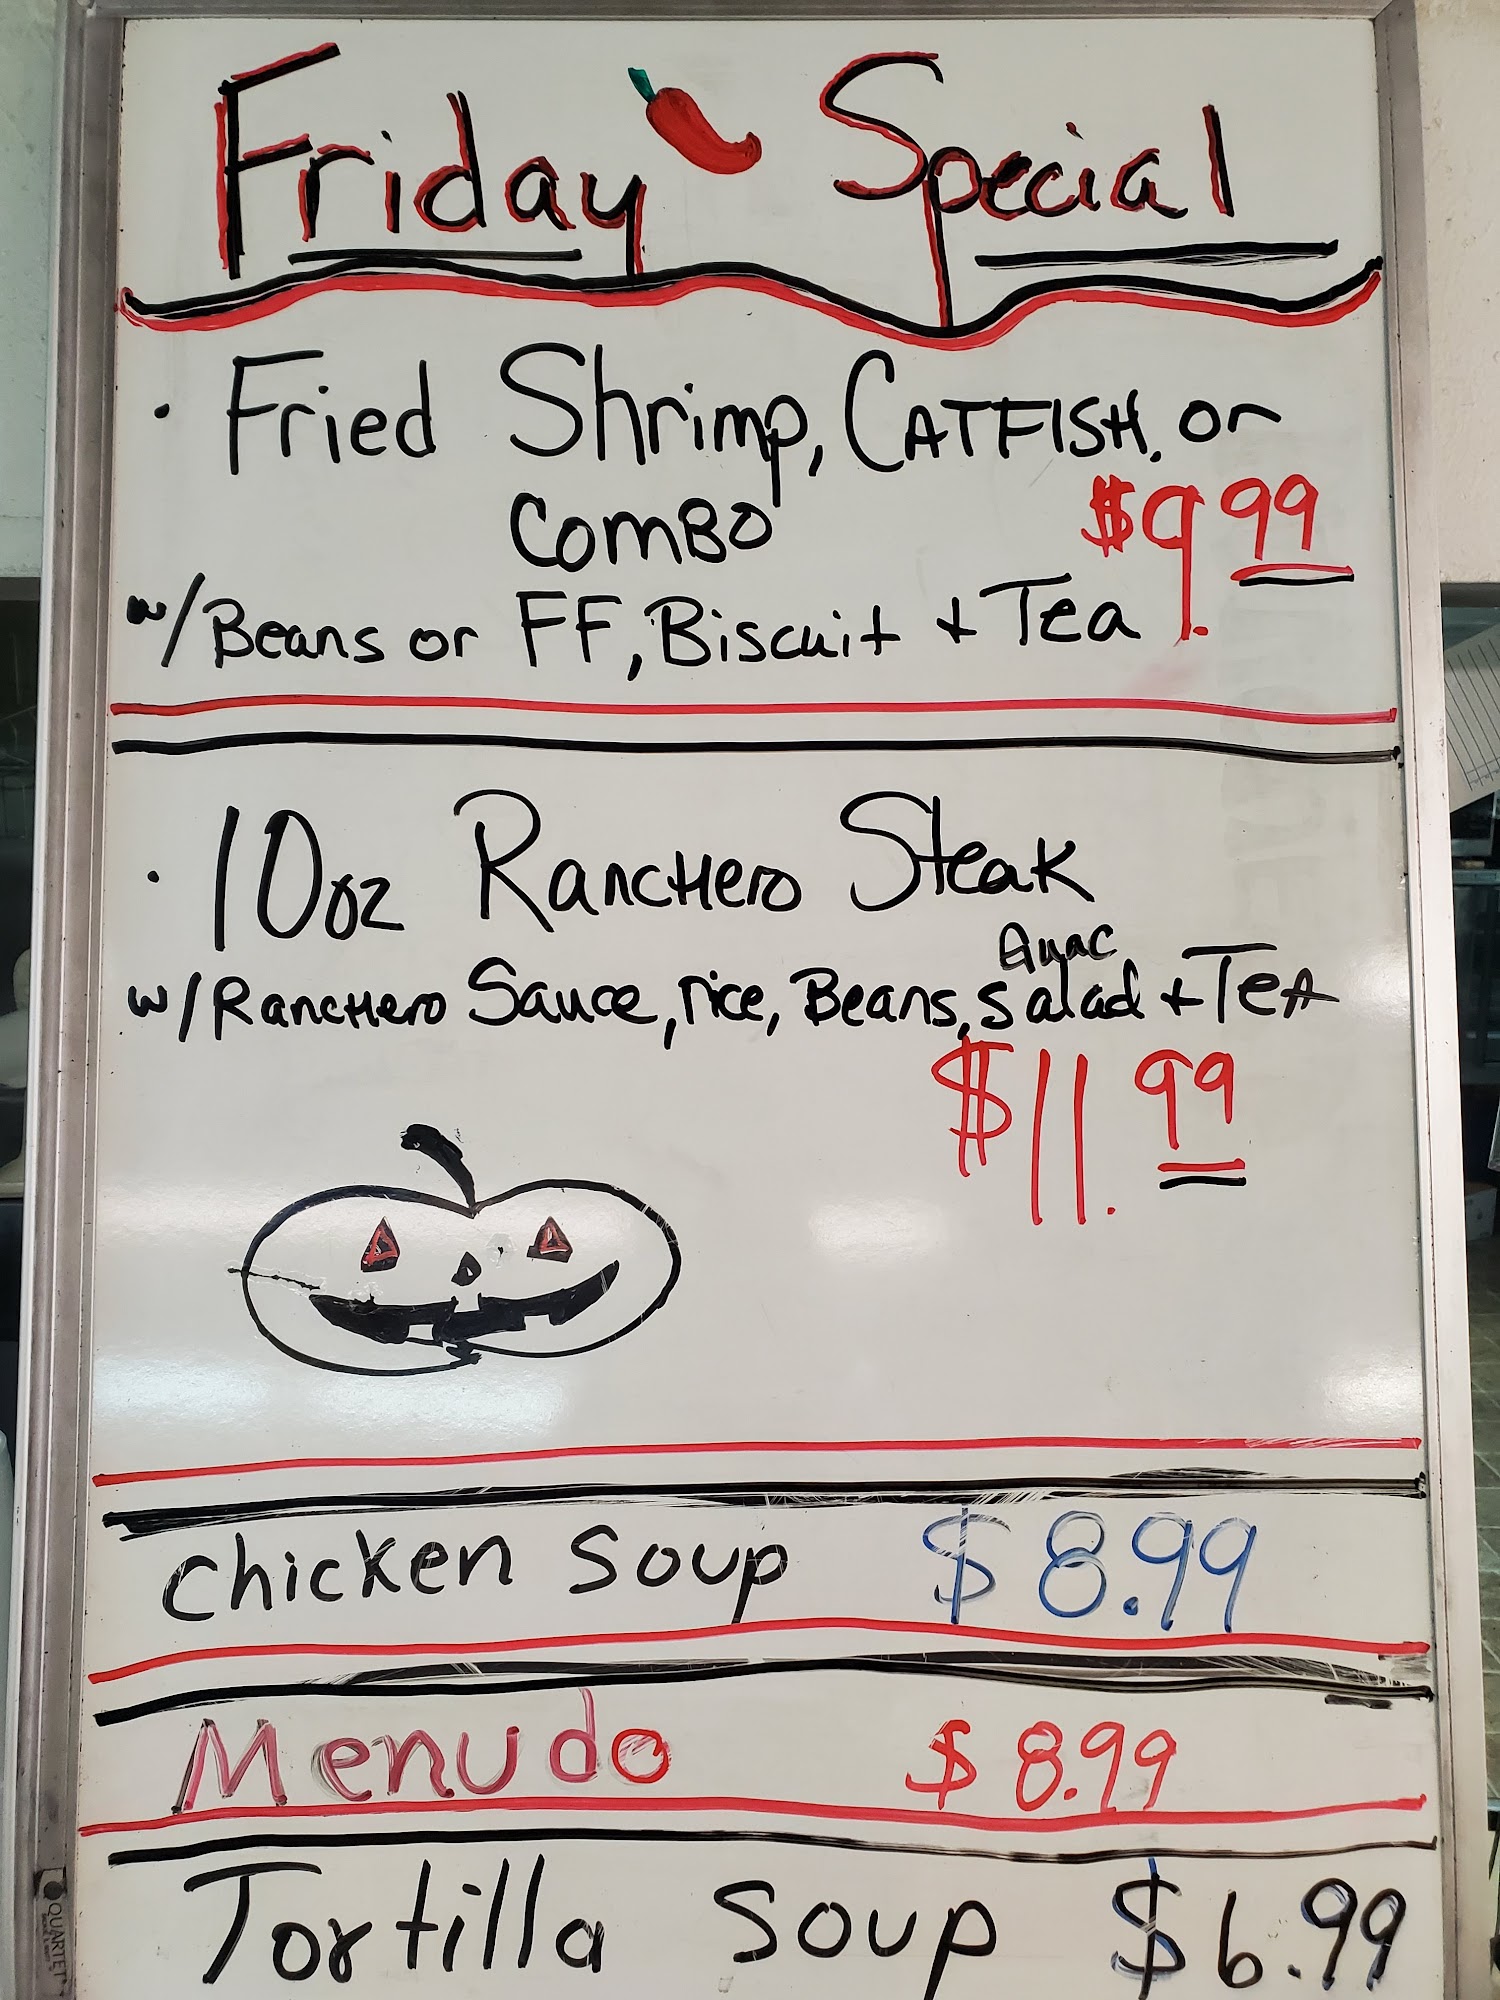 Friday Special
· Fried Shrimp, CATFISH, or
COMBO $9.99
w/ Beans or FF, Biscuit + Tea
· 10oz RancHero Steak
Guac
w/ RancHero Sauce, rice, Beans, salad + TeA
$11.99
chicken soup $8.99
Menudo $8.99
Tortilla soup $6.99
QUARTET